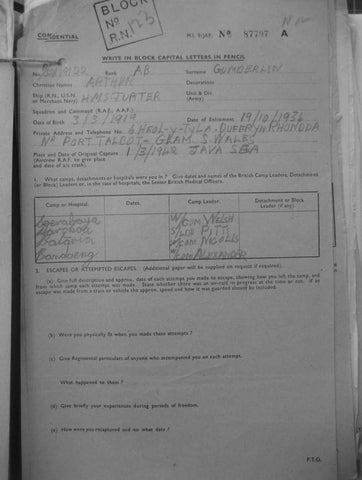 BLOCK
No
R.N. 123
CONFIDENTIAL
M.I. 9/JAP. No 87797 A
WRITE IN BLOCK CAPITAL LETTERS IN PENCIL
No. Rank AB Surname GOMBERLEN
Christian Names ARTHUR Decorations
Ship (R.N., U.S.N. or Merchant Navy) HMS JUPITER Unit & Div. (Army)
Squadron and Command (R.A.F., A.A.F.)
Date of Birth 3/3/1919 Date of Enlistment 19/10/1936
Private Address and Telephone No. 6 HEOL-Y-TYLA DUFFRYN RHONDDA
Nr PORT TALBOT-GLAM S. WALES
Place and Date of Original Capture 1/3/1942 JAVA SEA
(Aircrew R.A.F. to give place
and date of a/c crash).
1. What camps, detachments or hospitals were you in ? Give dates and names of the British Camp Leaders, Detachment
(or Block) Leaders or, in the case of hospitals, the Senior British Medical Officers.
Camp or Hospital. Dates. Camp Leader. Detachment or Block Leader (if any).
Soerabaya W/COM WELCH
S/LDR PITTS
Batavia W/COM NICOLLS
Bandoeng W/COM ALEXANDER
2. ESCAPES OR ATTEMPTED ESCAPES. (Additional paper will be supplied on request if required).
(a) Give full description and approx. date of each attempt you made to escape, showing how you left the camp, and
from which camp each attempt was made. State whether there was an air-raid in progress at the time or not. If an
escape was made from a train or vehicle the approx. speed and how it was guarded should be included.
(b) Were you physically fit when you made these attempts ?
(c) Give Regimental particulars of anyone who accompanied you on each attempt.
What happened to them ?
(d) Give briefly your experiences during periods of freedom.
(e) How were you recaptured and on what date ?
P.T.O.